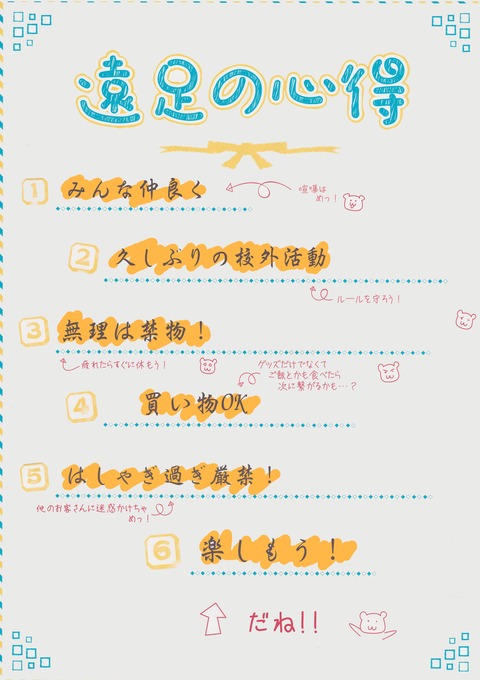 遠足の心得
1 みんな仲良く
喧嘩は
めっ！
2 久しぶりの校外活動
ルールを守ろう！
3 無理は禁物！
疲れたらすぐに休もう！
グッズだけでなくて
ご飯とかも食べたら
次に繋がるかも…？
4 買い物OK
5 はしゃぎ過ぎ厳禁！
他のお客さんに迷惑かけちゃ
めっ！
6 楽しもう！
だね!!